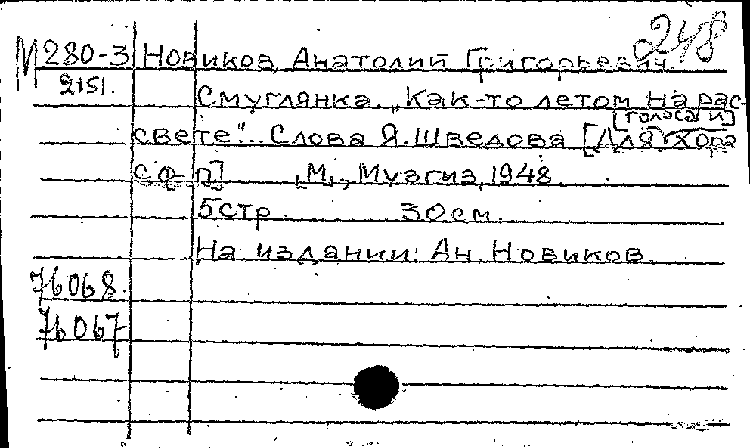 248
М 280-3 Новиков, Анатолий Григорьевич.
2151.
Смуглянка. „Как-то летом на рас-
[голоса и]
свете". Слова Я. Шведова [Для хора
с ф-п] М., Музгиз, 1948.
5 стр. 30 см.
На издании: Ан. Новиков.
76068.
76067